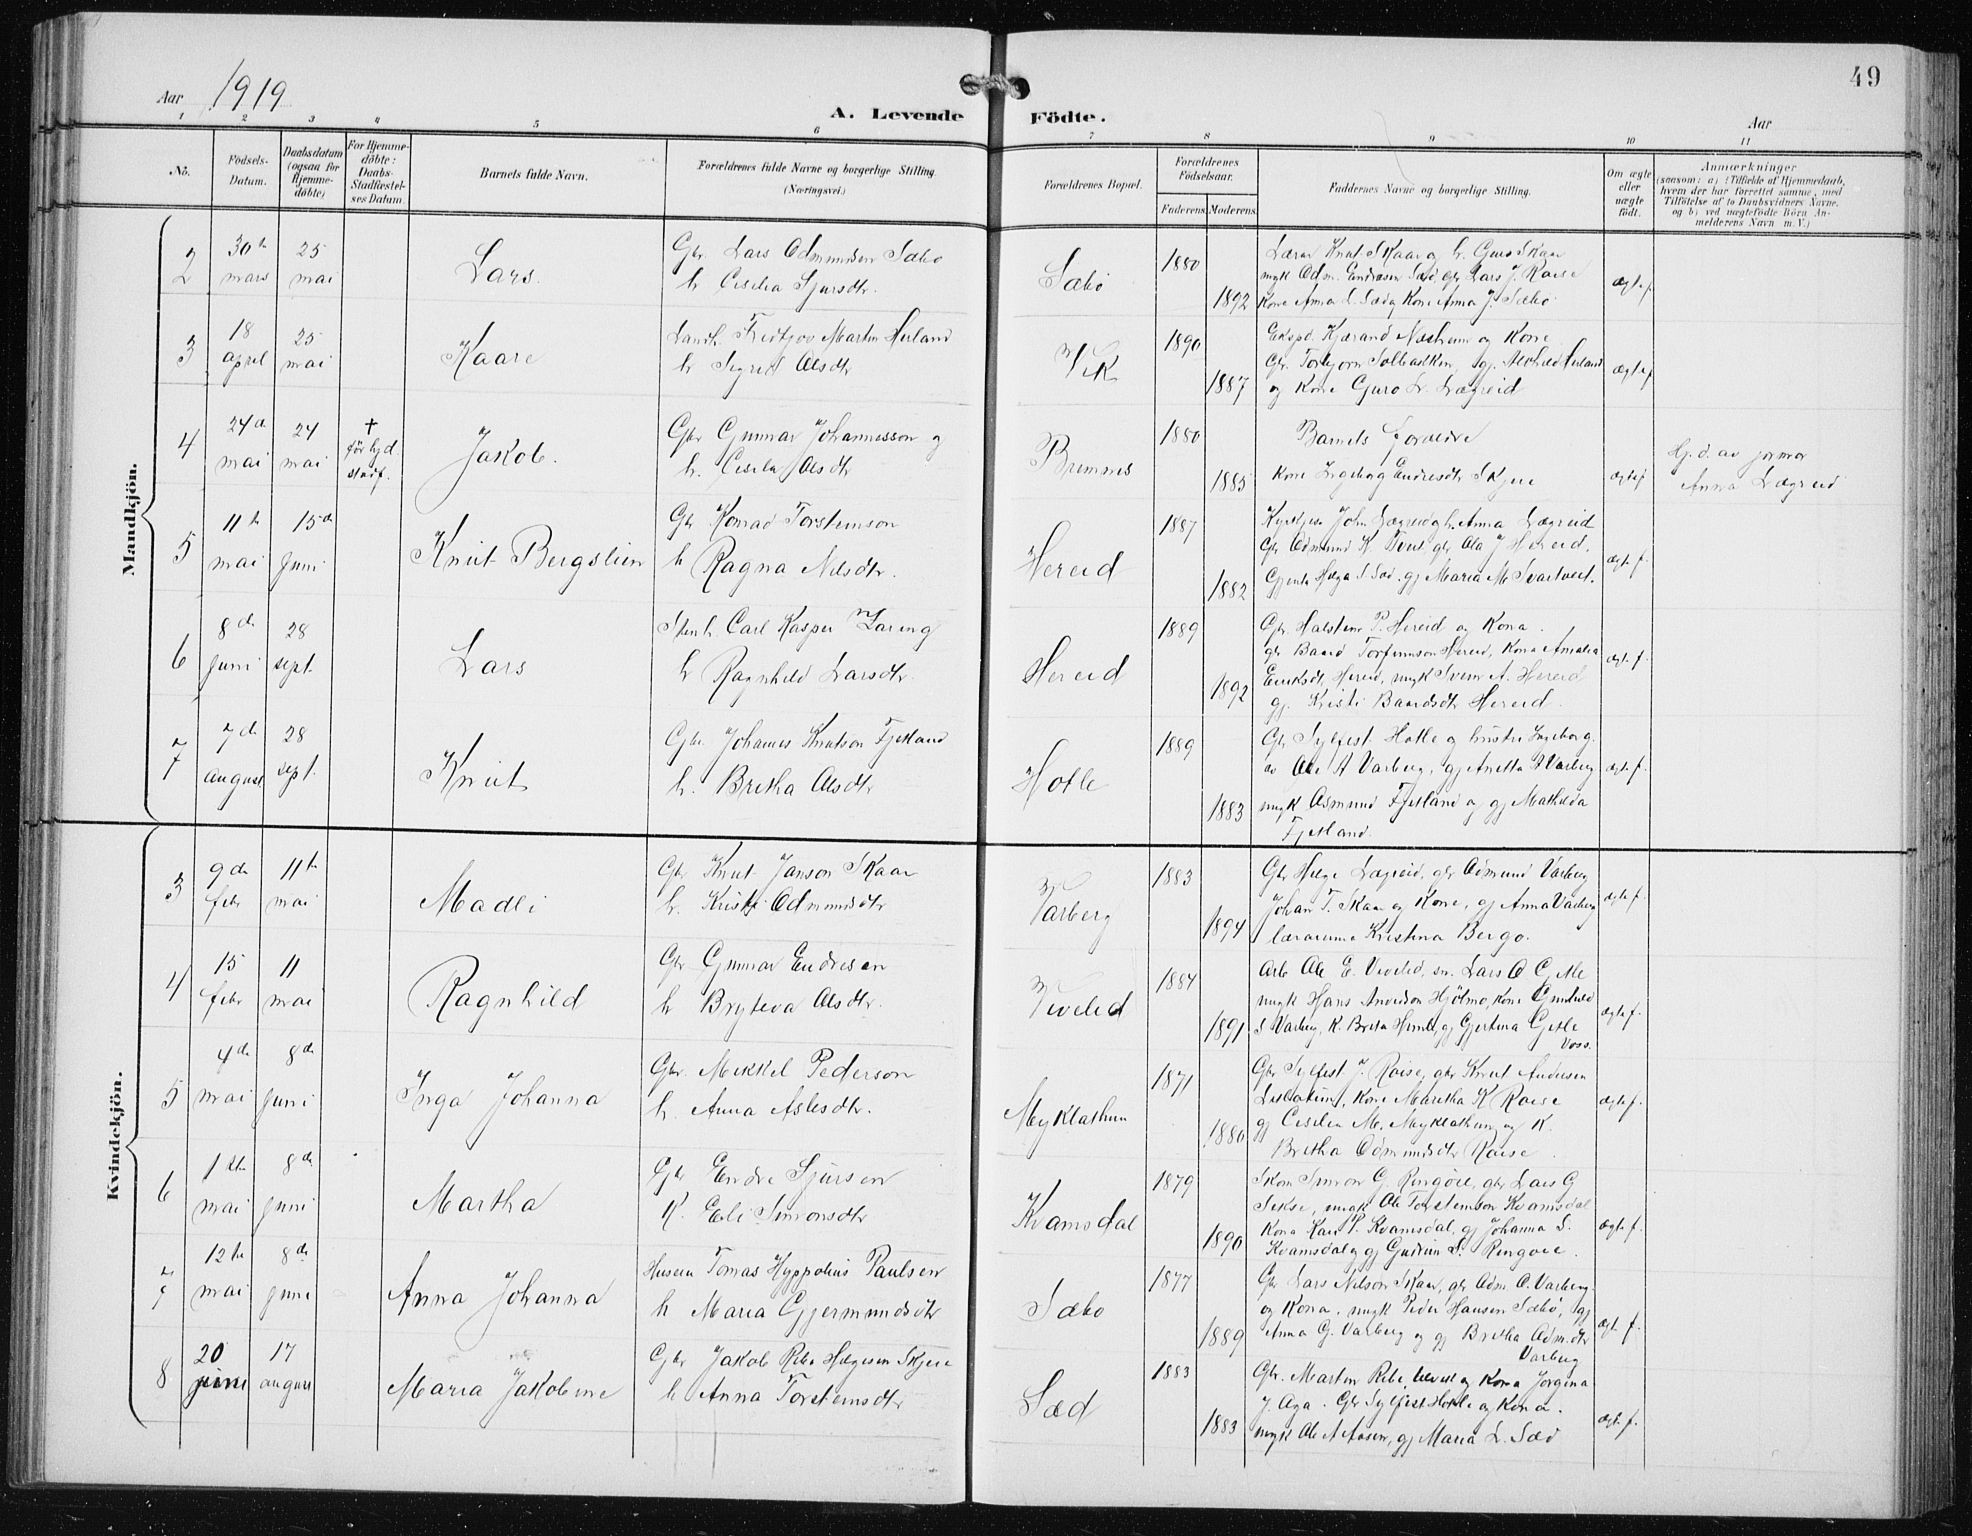 49
Aar 1919
A. Levende Födte.
Aar
1 2 3 4 5 6 7 8 9 10 11
No.
Födsels-Datum.
Daabsdatum (ogsaa for Hjemme-döbte)
For Hjemme-döbte: Daabs-Stadfæstel-ses Datum.
Barnets fulde Navn.
Forældrenes fulde Navne og borgerlige Stilling (Næringsvei.)
Forældrenes Bopæl.
Forældrenes Födselsaar.
Faderens. Moderens.
Faddernes Navne og borgerlige Stilling.
Om ægte eller uægte födt.
Anmærkninger
(saasom: a) i Tilfælde af Hjemmedaab,
hvem der har forrettet samme, med
Tilföielse af to Daabsvidners Navne,
og b) ved uægtefödte Börn An-
melderens Navn m. V.)
Mandkjön.
2 30te mars 25 mai Lars.
Gbr Lars Odmundsen Sæbø
h. Cesilia Sjursdtr.
Sæbø 1880 1892
Lærar Knut Skaar og h. Guro Skaar
ungk Odm. Endresen Sæd, gbr Lars J. Røise
Kone Anna L. Sæd og Kone Anna J. Sæbø
ægtef.
3 18 april 25 mai Kaare
Landh. Fredtjov Martin Herland
h. Sigrid Olsdtr
Vik 1890 1887
Eksped. Kjærand Næsheim og Kone
Gbr. Torbjørn gj. Herland
og Kone Guro L. Lægreid
ægtef
4 24de mai 24 mai † før hjd. stadf. Jakob.
Gbr Gunnar Johannesson og
h. Cesilia Olsdtr
Bremnes 1880 1885
Barnets Foreldre
Kone Ingeborg Endresdtr Skjeie
ægtef
Hj. d. av jormor
Anna Lægreid
5 11te mai 15de juni Knut Bergslien
Gbr Konrad Torsteinson
h Ragna Nilsdtr.
Hereid 1887 1882
John Lægreid og h. Anna Lægreid
Gbr Odmund K. Tveit, gbr Ola J Hereid.
Gjente Helga S Sæd. gj Maria M Svartveit.
ægte f.
6 8de juni 28 sept. Lars
Stenh. Carl Kasper Zaring
h Ragnhild Larsdtr.
Hereid 1889 1892
Gbr. Halstein P. Hereid og Kona.
gbr Baard Torfinnson Hereid, Kona Amalia
Eriksdtr Hereid, ungk Svein A. Hereid
gj. Kristi Baardsdtr Hereid.
ægte f.
7 7de august 28 sept. Knut
Gbr. Johannes Knutson Fjetland
h. Bretha Olsdtr
Hotle 1889 1883
Gbr Sylfest Hotle og hustru Ingeborg.
av Ole A Varberg, gj Anetta A Varberg
ungk Osmund Fjetland og gj Mathilda
Fjetland.
ægte f.
Kvindekjön.
3 9de febr 11te mai Madli
Gbr Knut Janson Skaar
h. Kristi Odmundsdtr
Varberg 1883 1894
Gbr Helge Lægreid, gbr Odmund Varberg
Johan T. Skaar og Kone, gj Anna Varberg
lærarinne Kristina Bergo.
ægte f.
4 15 febr 11 mai Ragnhild
Gbr Gunnar Endresen
h Bryteva Olsdtr.
Viveled 1884 1891
Arb Ole E. Viveled, sn. Lars O Gjetle
ungk Hans Hjølmo, kone Gunhild
S Varberg, K. Brita gj Gjertina Gjetle
Voss.
ægte f.
5 4de mai 8de juni Inga Johanna
Gbr. Mikkel Pederson
h. Anna Aslesdtr.
Myklathun 1871 1880
Gbr Sylfest J. Røise, gbr Knut Andersen
Lislatun, Kone Maretha K Røise
gj Cesilia M. Myklathun og K.
Bretha Odmundsdtr Røise.
ægte f.
6 1ste mai 8de juni Martha
Gbr Endre Sjursen
K. Eli Simonsdtr
Kvamsdal 1879 1890
Skom Simon G. Ringøie, gbr Lars G
Sekse, ungk Ole Torsteinson Kvamsdal
Kona Kari P. Kvamsdal, gj Johanna S.
Kvamsdal og gj Gudrun S. Ringøie.
ægte f.
7 12te mai 8de juni Anna Johanna
Huseier Tomas Hyppolius Paulsen
h Maria Gjermundsdtr
Sæbø 1877 1889
Gbr Lars Nilson Skaar, gbr Odm O. Varberg
og Kona, ungk Peder Hansen Sæbø, gj
Anna G. Varberg og gj Bretha Odm.dtr
Varberg
ægte f.
8 20 juni 17 august Maria Jakobine
Gbr Jakob Rebe Helgesen Skjeie
h Anna Torsteinsdtr
Sæd 1883 1883
Gbr. Martin Rebe og Kona Jorgina
J. Aga. Gbr Sylfest Hotle og Kona.
ungk Ole A Aasen, gj Maria L. Sæd
ægte f.